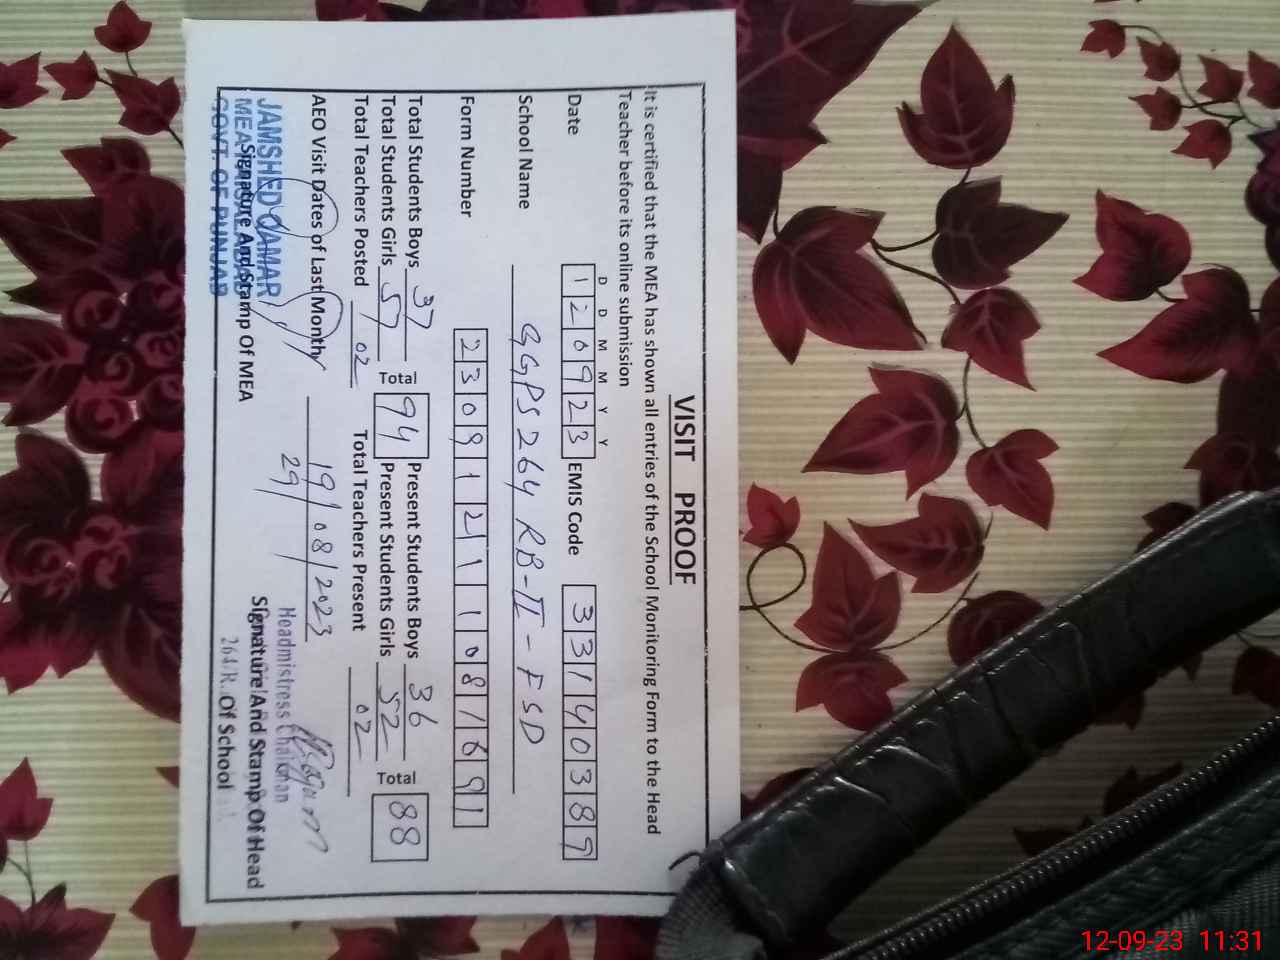 VISIT PROOF
It is certified that the MEA has shown all entries of the School Monitoring Form to the Head
Teacher before its online submission
D D M M Y Y
Date 1 2 0 9 2 3 EMIS Code 3 3 1 4 0 3 8 9
School Name GGPS 264 RB-II - FSD
Form Number 2 3 0 9 1 2 1 1 0 8 1 6 9 1
Total Students Boys 37 Present Students Boys 36
Total Students Girls 57 Total 94 Present Students Girls 52 Total 88
Total Teachers Posted 02 Total Teachers Present 02
AEO Visit Dates of Last Month 19/08/2023
29/
JAMSHED QAMAR
MEA FAISALABAD
GOVT. OF PUNJAB
Signature And Stamp Of MEA
Headmistress
Signature And Stamp Of Head
Of School
12-09-23 11:31